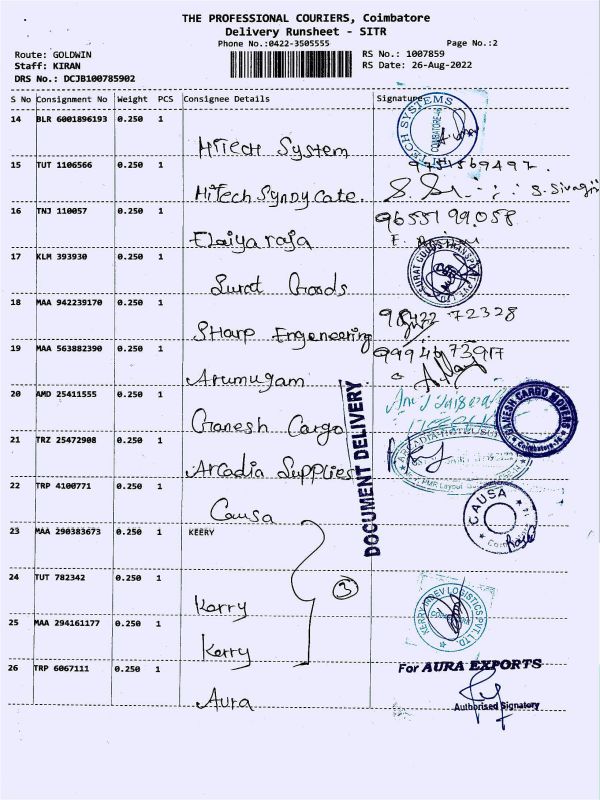 THE PROFESSIONAL COURIERS, Coimbatore
Delivery Runsheet - SITR
Phone No.:0422-3505555 Page No.:2
Route: GOLDWIN RS No.: 1007859
Staff: KIRAN RS Date: 26-Aug-2022
DRS No.: DCJB100785902
S No Consignment No Weight PCS Consignee Details Signature
14 BLR 6001896193 0.250 1
HiTech System
15 TUT 1106566 0.250 1
HiTech Syndycate. S. Sivagji
16 TNJ 110057 0.250 1 9655199058
Elaiyaraja
17 KLM 393930 0.250 1
Surat Goods
18 MAA 942239170 0.250 1
SHarp Engeneering
19 MAA 563882390 0.250 1
Arumugam
20 AMD 25411555 0.250 1
Ganesh Cargo
GANESH CARGO MOVERS
21 TRZ 25472908 0.250 1
Arcadia Supplies
DOCUMENT DELIVERY
22 TRP 4100771 0.250 1
Causa
CAUSA
23 MAA 290383673 0.250 1 KEERY
3
24 TUT 782342 0.250 1
Kerry
KERRY INDEV LOGISTICS PVT LTD
25 MAA 294161177 0.250 1
Kerry
26 TRP 6067111 0.250 1
For AURA EXPORTS
Aura
Authorised Signatory